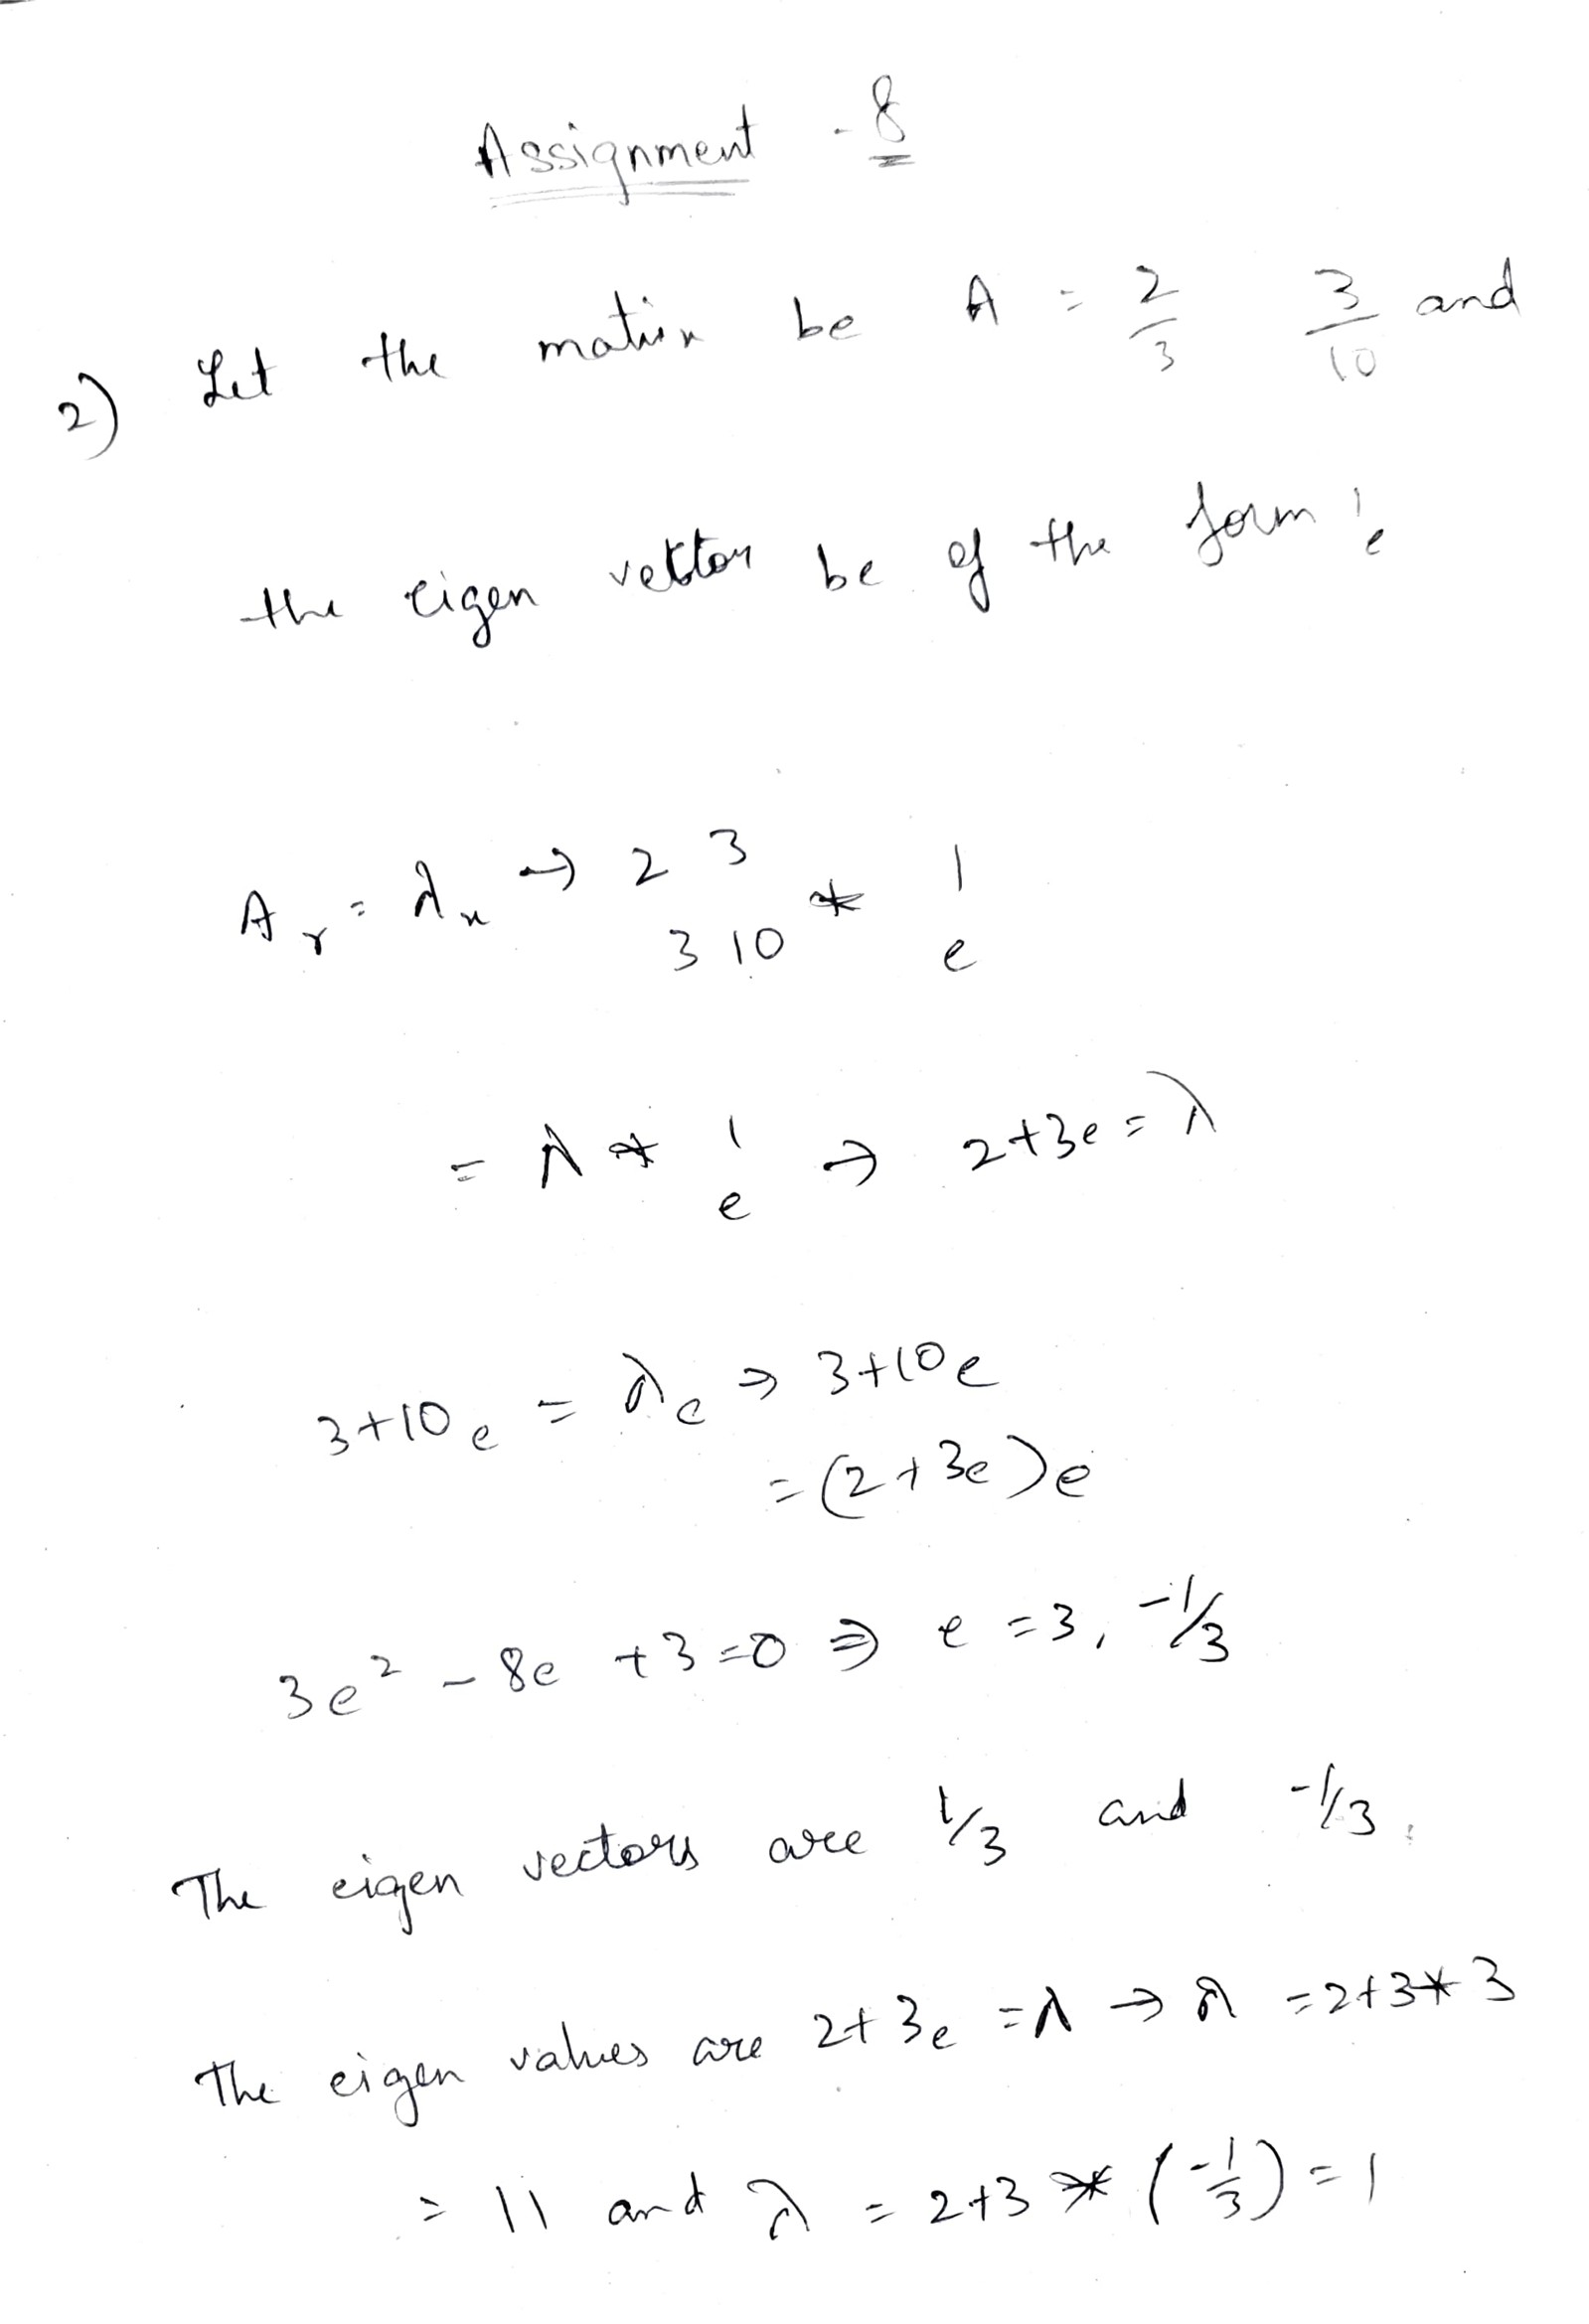 Assignment - 8
2) Let the matrix be A = 2/3 3/10 and
the eigen vector be of the form 1 e
A r = λ x → 2 3
3 10 * 1
e
= λ * 1
e → 2+3e = λ
3+10e = λe ⇒ 3+10e
= (2+3e)e
3e² - 8e +3 =0 ⇒ e = 3, -1/3
The eigen vectors are 1/3 and -1/3.
The eigen values are 2+3e = λ → λ = 2+3*3
= 11 and λ = 2+3 * (-1/3) = 1